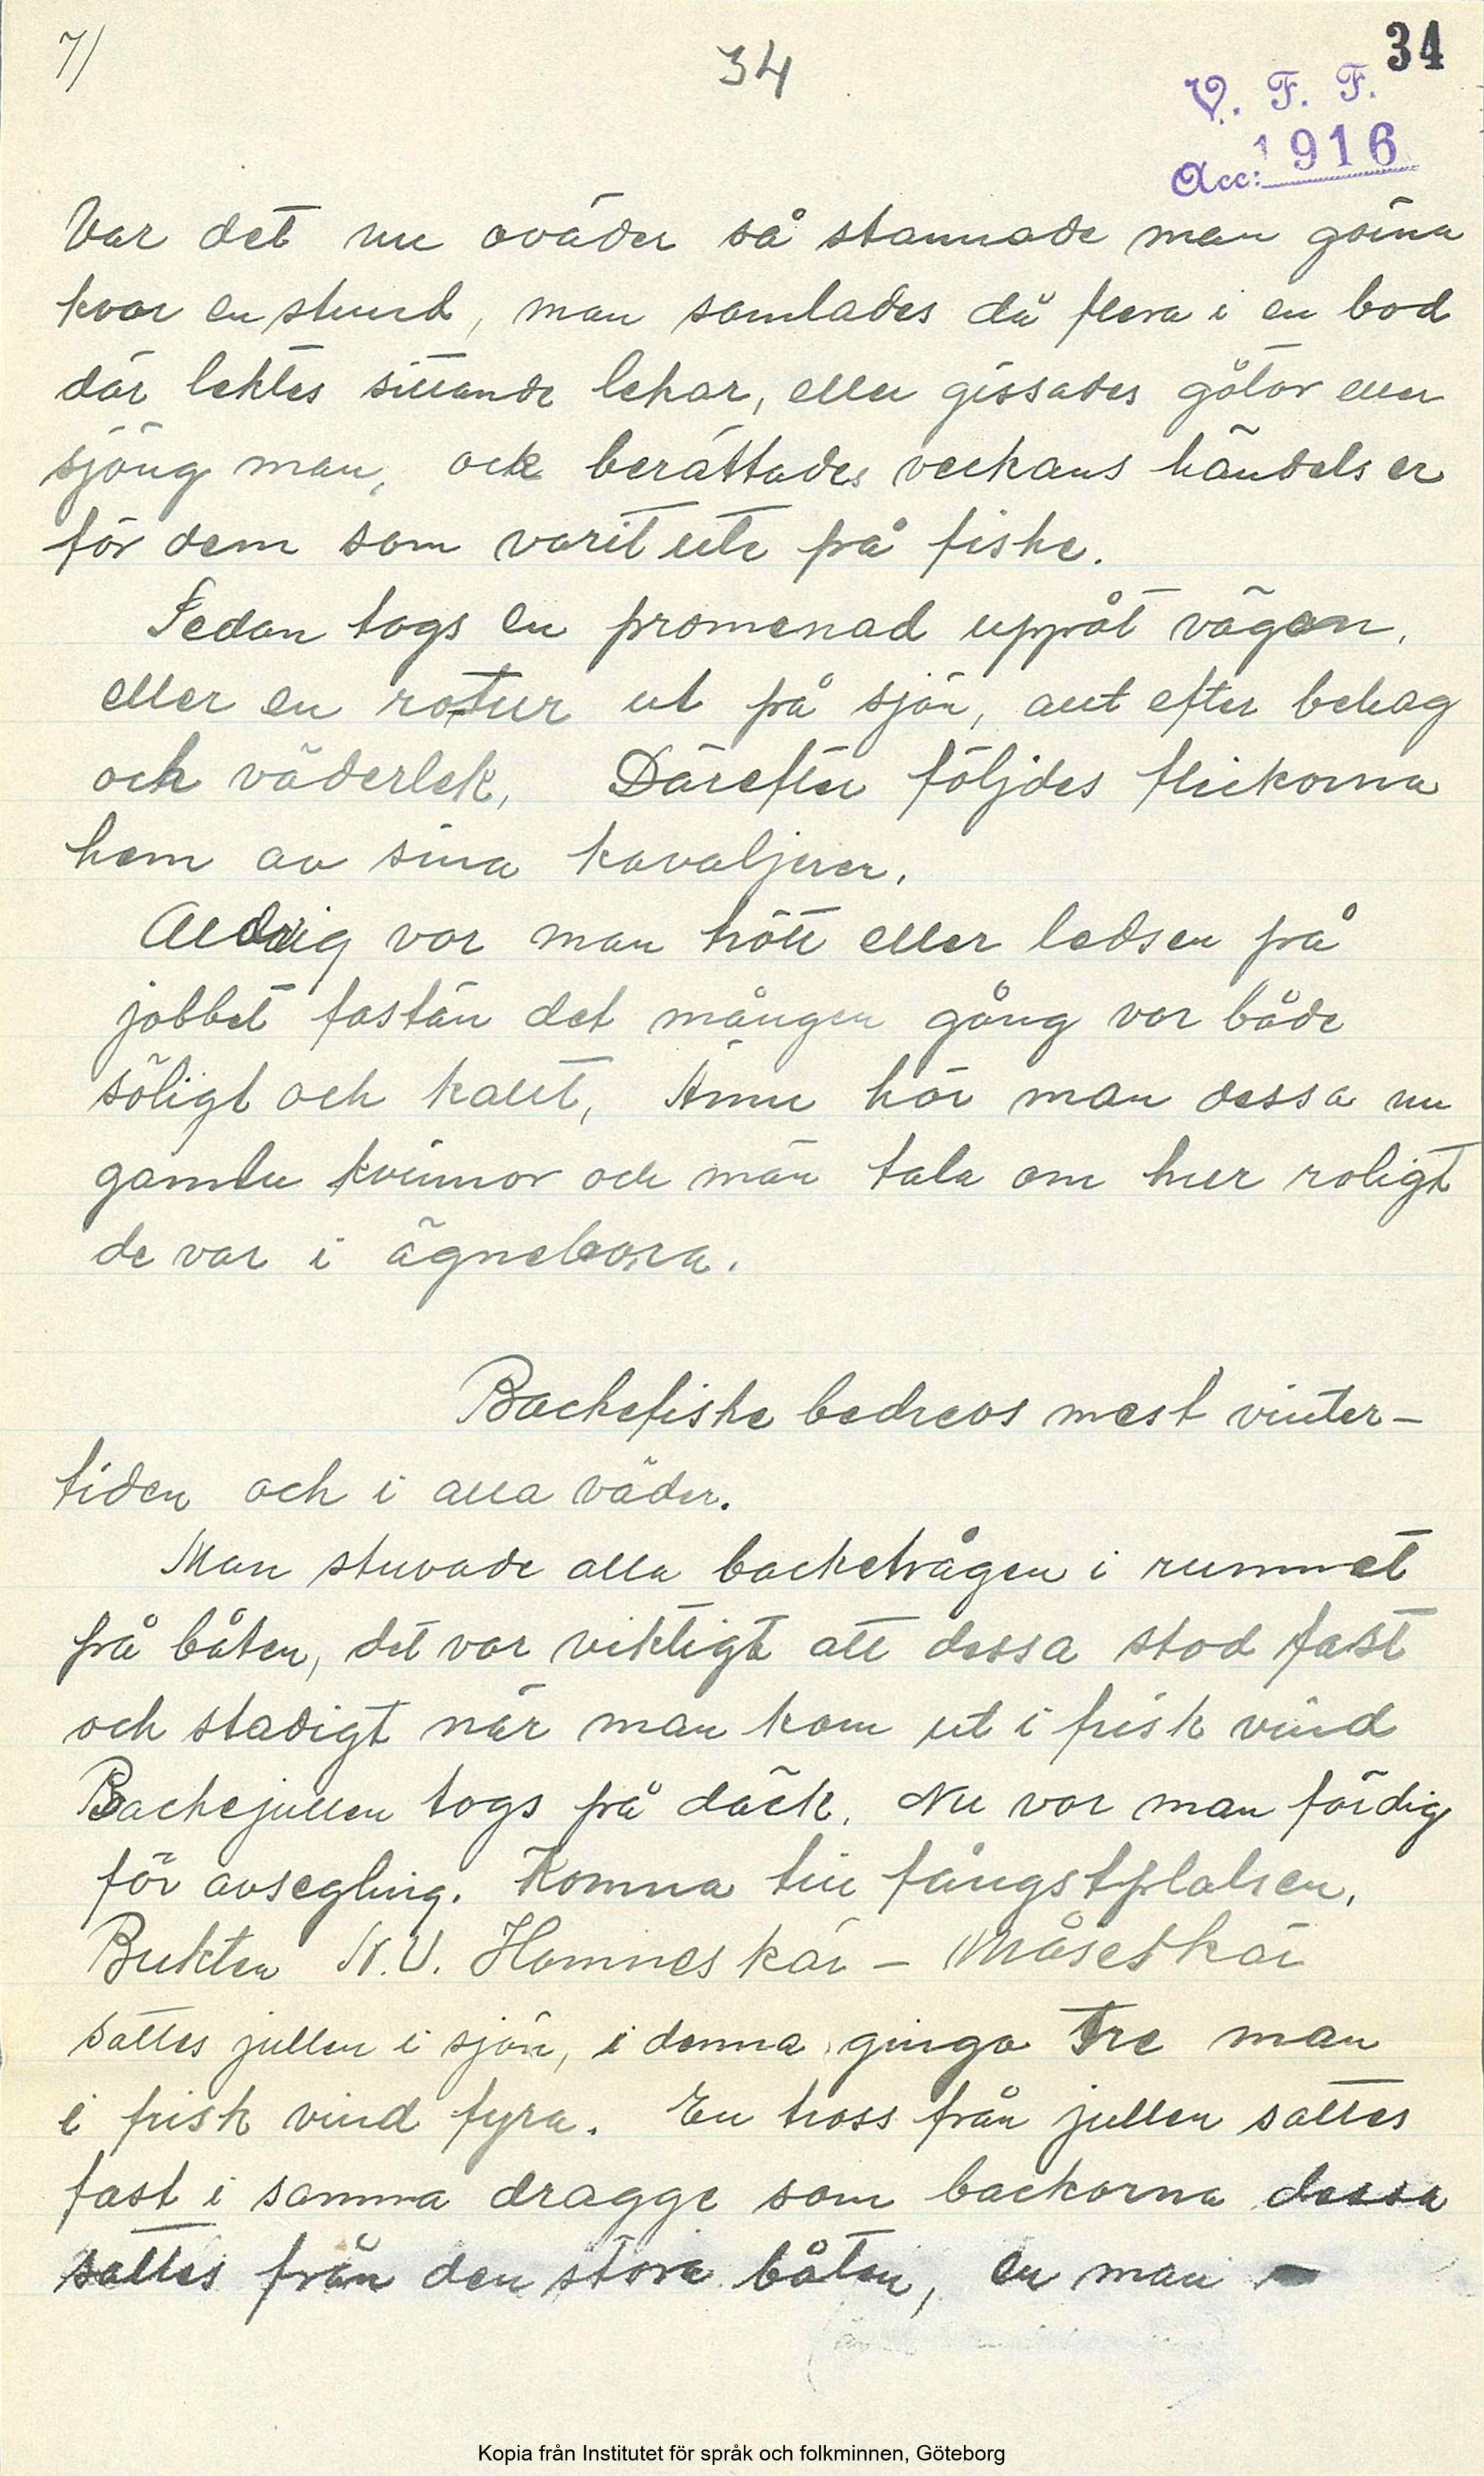 7/
34
34
V. F. F.
Acc: 1916
Var det nu oväder så stannade man gärna
kvar en stund, man samlades då flera i en bod
där lektes sittande lekar, eller gissades gåtor eller
sjöng man, ock berättades veckans händelser
för dem som varit ute på fiske.
Sedan togs en promenad uppåt vägen,
eller en rotur ut på sjön, allt efter behag
och väderlek, Därefter följdes flickorna
hem av sina kavaljerer.
Aldrig var man trött eller ledsen på
jobbet fastän det mången gång var både
söligt och kallt, Ännu hör man dessa nu
gamla kvinnor och män tala om hur roligt
de var i ägnebora.
Backefiske bedrevs mest vinter-
tiden och i alla väder.
Man stuvade alla backetrågen i rummet
på båten, det var viktigt att dessa stod fast
och stadigt när man kom ut i frisk vind
Backejullen togs på däck. Nu var man färdig
för avsegling. Komna till fångstplatsen,
Bukten N.V. Hamneskär – Måseskär
sattes jullen i sjön, i denna ginga tre man
i frisk vind fyra. En tross från jullen sattes
fast i samma dragge som backorna dessa
sattes från den stora båten, en man
Kopia från Institutet för språk och folkminnen, Göteborg